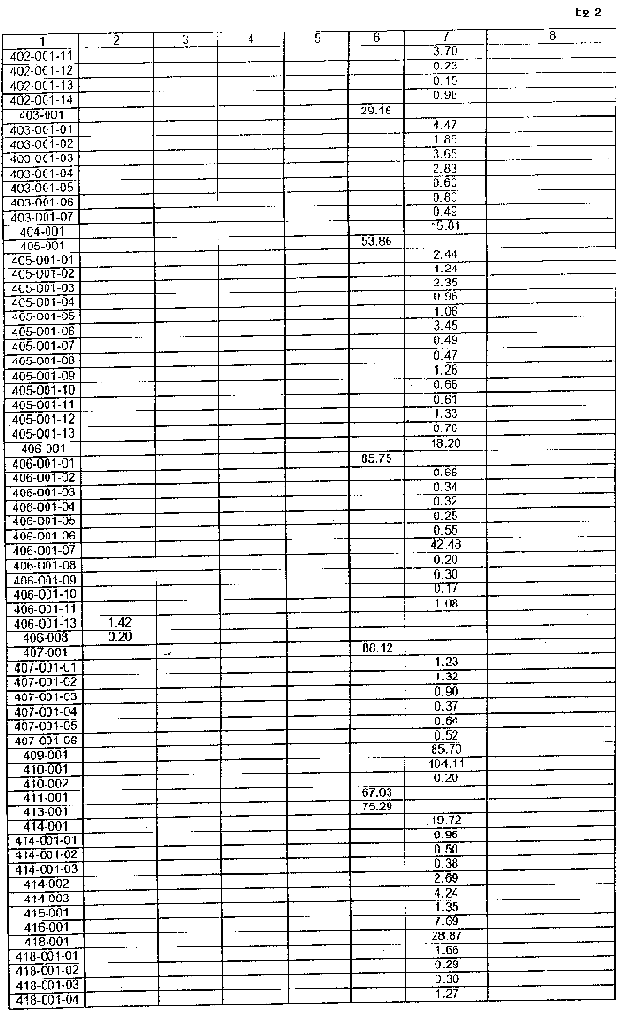 tg 2
1 2 3 4 5 6 7 8
402-001-11 3.70
402-001-12 0.23
402-001-13 0.15
402-001-14
403-001 29.16
403-001-01 4.47
403-001-02
403-001-03 3.65
403-001-04 2.83
403-001-05
403-001-06
403-001-07
404-001
405-001 53.86
405-001-01 2.44
405-001-02 1.24
405-001-03 2.35
405-001-04
405-001-05 1.06
405-001-06 3.45
405-001-07 0.49
405-001-08 0.47
405-001-09 1.26
405-001-10 0.66
405-001-11 0.61
405-001-12 1.33
405-001-13 0.70
406-001 18.20
406-001-01 85.75
406-001-02 0.66
406-001-03 0.34
406-001-04 0.32
406-001-05 0.25
406-001-06 0.55
406-001-07 42.43
406-001-08 0.20
406-001-09 0.30
406-001-10 0.17
406-001-11 1.08
406-001-13 1.42
406-003 0.20
407-001 88.12
407-001-01 1.23
407-001-02 1.32
407-001-03 0.90
407-001-04 0.37
407-001-05 0.64
407-001-06 0.52
409-001 85.70
410-001 104.11
410-002 0.20
411-001 67.03
413-001 75.29
414-001 19.72
414-001-01 0.96
414-001-02 0.50
414-001-03 0.38
414-002 2.69
414-003 4.24
415-001 1.35
416-001 7.69
418-001 28.87
418-001-01 1.66
418-001-02 0.29
418-001-03 0.30
418-001-04 1.27